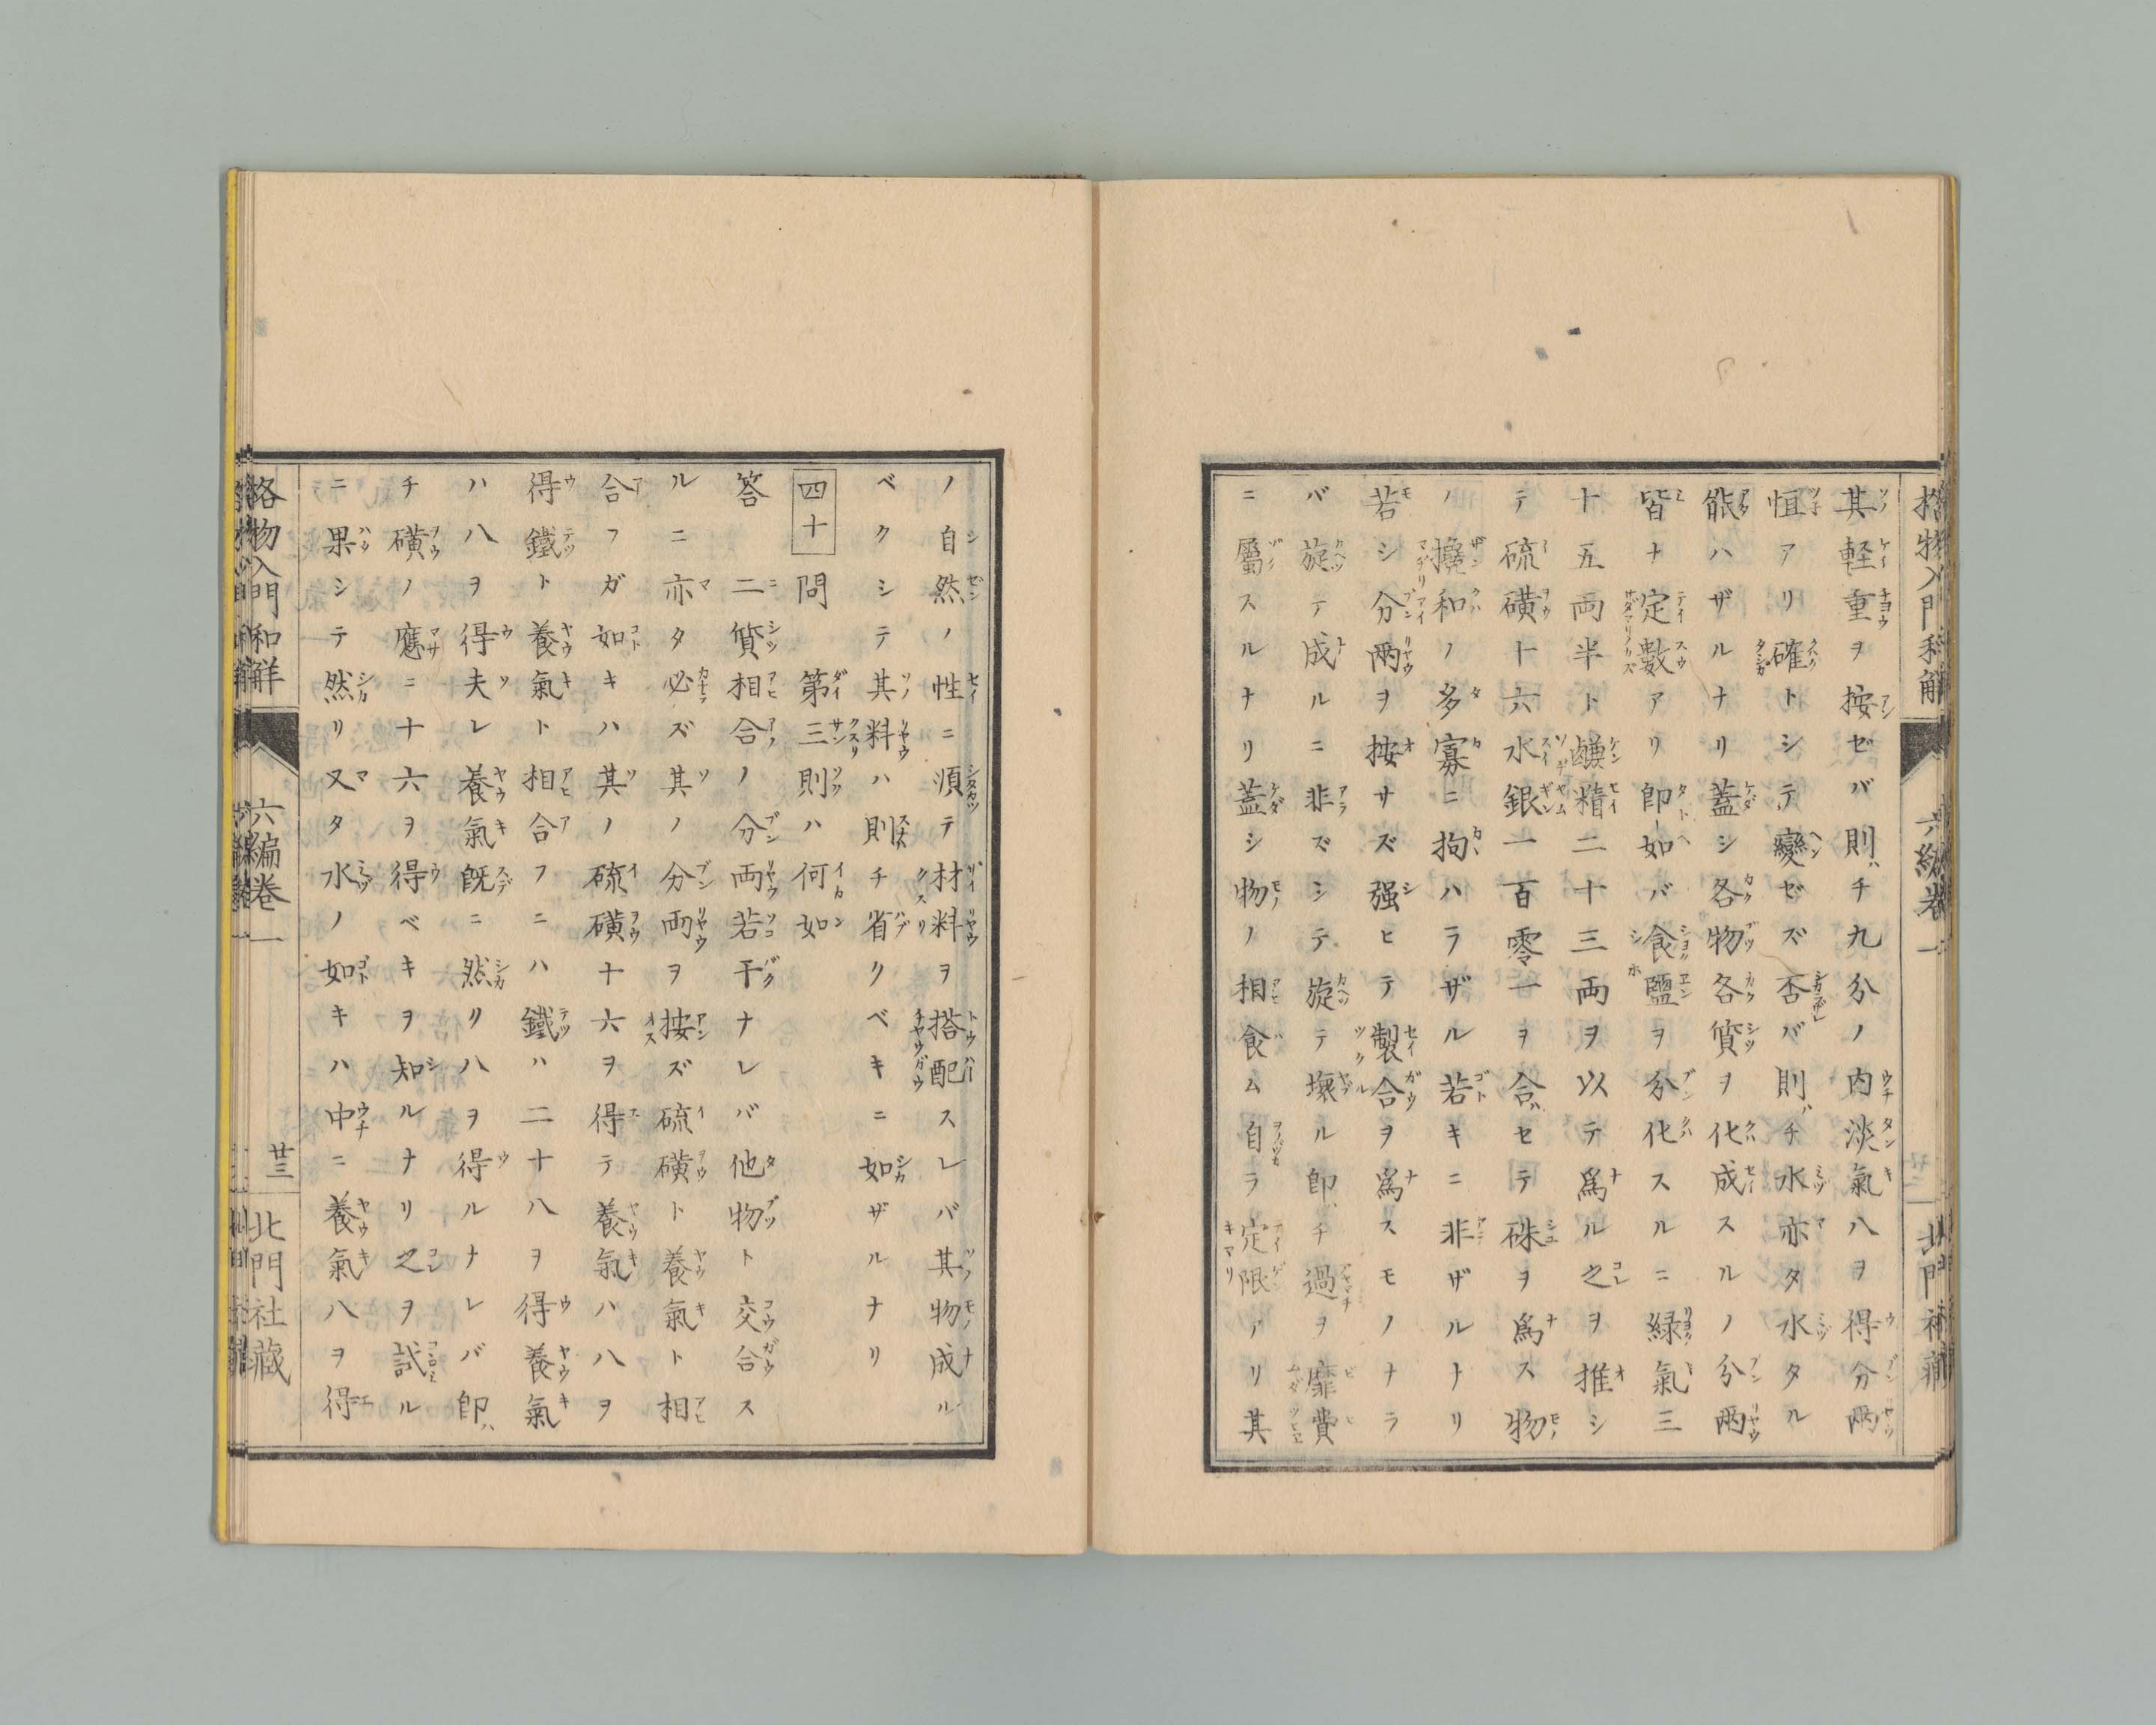 其軽重ヲ按ゼバ則チ九分ノ内淡氣八ヲ得分兩
恒アリ確トシテ變ゼズ否バ則チ水亦タ水タル
能ハザルナリ蓋シ各物各質ヲ化成スルノ分兩
皆ナ定數アリ即如バ食鹽ヲ分化スルニ緑氣三
十五両半ト鹻精二十三両ヲ以テ爲ル之ヲ推シ
テ硫磺十六水銀一百零一ヲ合セテ硃ヲ爲ス物
ノ攙和ノ多寡ニ拘ハラザル若キニ非ザルナリ
若シ分兩ヲ按サズ强ヒテ製合ヲ爲スモノナラ
バ旋テ成ルニ非ズシテ旋テ壊ル即チ過ヲ靡費
ニ屬スルナリ蓋シ物ノ相食ム自ラ定限アリ其
ノ自然ノ性ニ須テ材料ヲ搭配スレバ其物成ル
ベクシテ其料ハ則チ省クベキニ如ザルナリ
四十 問 第三則ハ何如
答 二質相合ノ分両若干ナレバ他物ト交合ス
ルニ亦タ必ズ其ノ分両ヲ按ズ硫磺ト養氣ト相
合フガ如キハ其ノ硫磺十六ヲ得テ養氣ハ八ヲ
得鐵ト養氣ト相合フニハ鐵ハ二十八ヲ得養氣
ハ八ヲ得夫レ養氣既ニ然リ八ヲ得ルナレバ即
チ磺ノ應ニ十六ヲ得ベキヲ知ルナリ之ヲ試ル
ニ果シテ然リ又タ水ノ如キハ中ニ養氣八ヲ得
格物入門和解 六編卷一 廿三 北門社藏